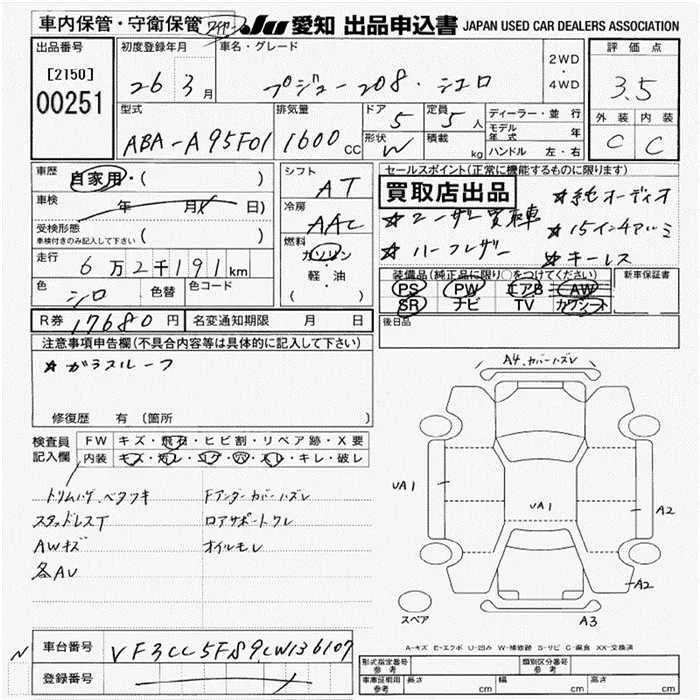 車内保管・守衛保管 JU 愛知 出品申込書 JAPAN USED CAR DEALERS ASSOCIATION
出品番号 初度登録年月 車名・グレード 評価点
[2150] 26年3月 プジョー208・シエロ 2WD・4WD 3.5
00251
型式 排気量 ドア 定員 ディーラー・並行 外装 内装
ABA-A95F01 1600cc 5 5人 モデル年式 年 C C
形状 W 積載 kg ハンドル 左・右
車歴 自家用・( ) シフト AT セールスポイント(正常に機能するものに限り)
買取店出品 ☆純オーディオ
車検 年 月 日) 冷房 AAC ☆ユーザー買取車 ☆15インチアルミ
受検形態 ( )
車検付きのみ記入して下さい
燃料 ガソリン・軽・油 ( ) ☆ハーフレザー ☆キーレス
走行 6万2千191km 装備品(純正品に限り○をつけてください) 新車保証書
色 シロ 色替 色コード PS PW エアB AW
SR ナビ TV カワシート
R券 17680円 名変通知期限 月 日 後日品
注意事項申告欄(不具合内容等は具体的に記入して下さい)
☆ガラスルーフ
A4.カバーハズレ
修復歴 有(箇所
検査員記入欄 FW キズ・飛石・ヒビ割・リペア跡・X要
内装 キズ・汚レ・コゲ・穴・スレ・キレ・破レ
トリムハゲ、ベタツキ Fアンダーカバーハズレ UA1
スタッドレスT ロアサポートワレ UA1 A2
AWキズ オイルモレ
各AU A2
スペア A3
A-キズ E-エクボ U-凹み W-補修跡 S-サビ C-腐食 XX-交換済
N 車台番号 VF3CC5FS9CW136107
登録番号
形式指定番号 参考 類別区分番号 参考
車庫証明用 参考 長さ cm 幅 cm 高さ cm